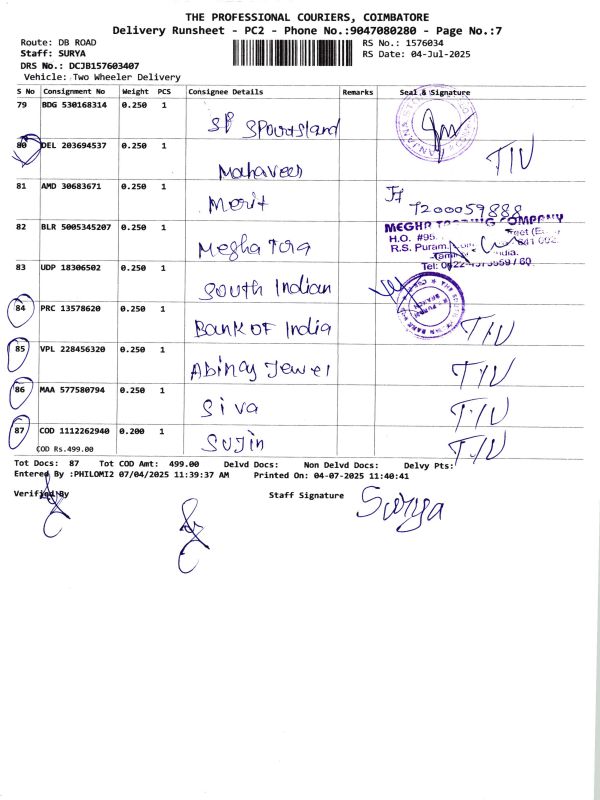 THE PROFESSIONAL COURIERS, COIMBATORE
Delivery Runsheet - PC2 - Phone No.:9047080280 - Page No.:7
Route: DB ROAD RS No.: 1576034
Staff: SURYA RS Date: 04-Jul-2025
DRS No.: DCJB157603407
Vehicle: Two Wheeler Delivery
S No Consignment No Weight PCS Consignee Details Remarks Seal & Signature
79 BDG 530168314 0.250 1 SP Sportsland
80 DEL 203694537 0.250 1 Mahaveer TIN
81 AMD 30683671 0.250 1 Merit 7200059888
82 BLR 5005345207 0.250 1 Megha Torg
MEGHA TRADING COMPANY
H.O. #95
R.S. Puram
641 002
Tel: 0422
83 UDP 18306502 0.250 1 South Indian
84 PRC 13578620 0.250 1 Bank OF India TIN
85 VPL 228456320 0.250 1 Abinay Jewel TIN
86 MAA 577580794 0.250 1 Siva TIN
87 COD 1112262940 0.200 1 Sujin TIN
COD Rs.499.00
Tot Docs: 87 Tot COD Amt: 499.00 Delvd Docs: Non Delvd Docs: Delvy Pts:
Entered By :PHILOMI2 07/04/2025 11:39:37 AM Printed On: 04-07-2025 11:40:41
Verified By Staff Signature Surya